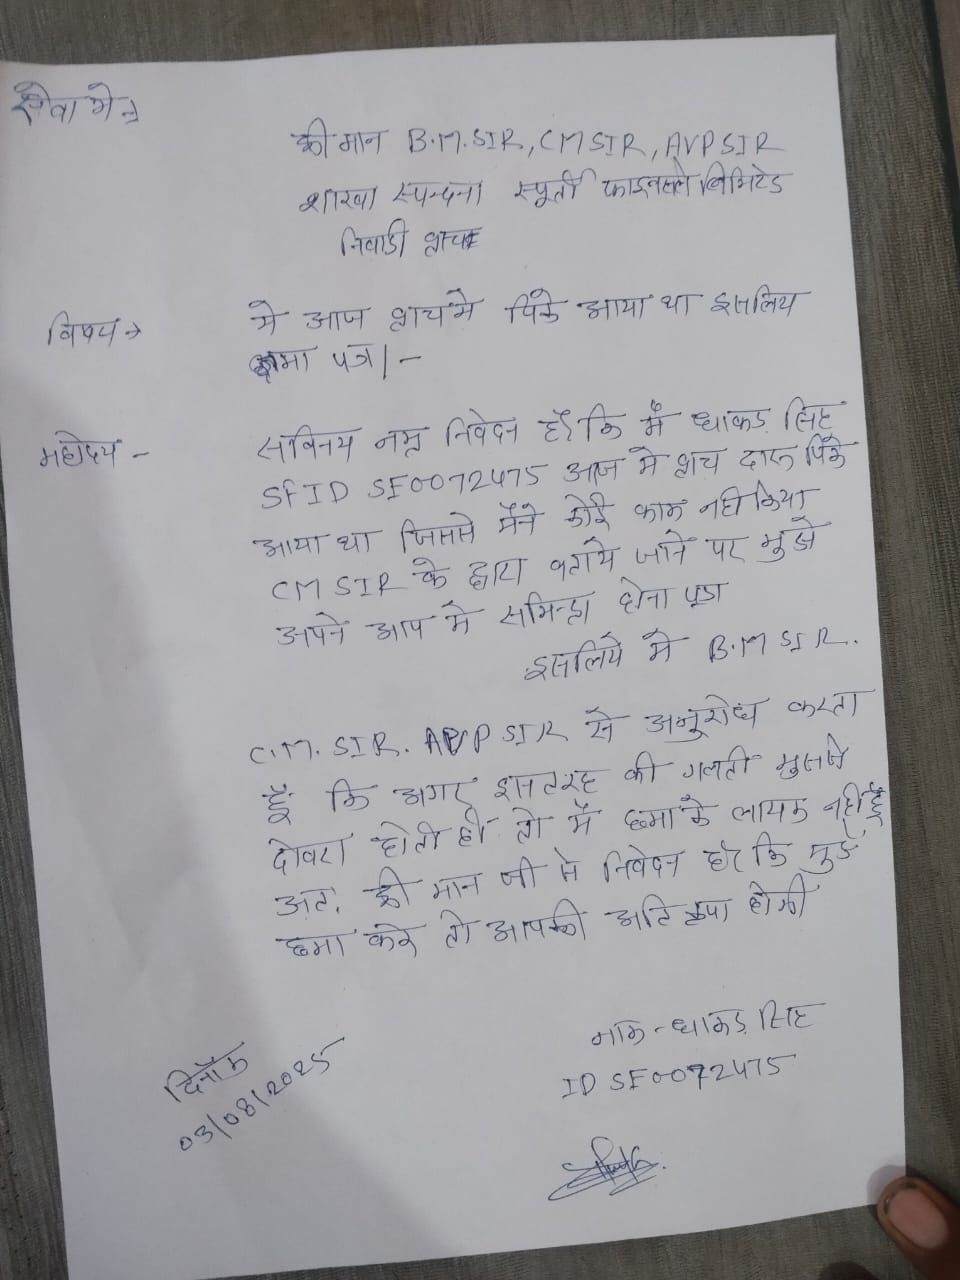 सेवा मे→
श्री मान B.M.SIR, CM SIR, AVP SIR
शाखा स्पन्दना स्फूर्ती फाइनेंसले लिमिटेड
निवाडी ब्राच
विषय→ मे आज ब्राच मे पिके आया था इसलिय
क्षमा पत्र।-
महोदय - सविनय नम्र निवेदन है कि मैं धाकड़ सिंह
SFID SF0072475 आज मे ब्राच दारू पिके
आया था जिससे मैंने कोई काम नही किया
CM SIR के द्वारा बताये जाने पर मुझे
अपने आप मे समिन्दा होना पडा
इसलिये मे B.M SIR.
C.M. SIR. AVP SIR से अनुरोध करता
हूँ कि अगर इसतरह की गलती मुझसे
दोवरा होती है तो मैं छमा के लायक नही हूँ
अत. श्री मान जी से निवेदन है कि मुझे
छमा करे तो आपकी अति कृपा होगी
नाम - धाकड़ सिंह
ID SF0072475
दिनाँक
03/08/2025